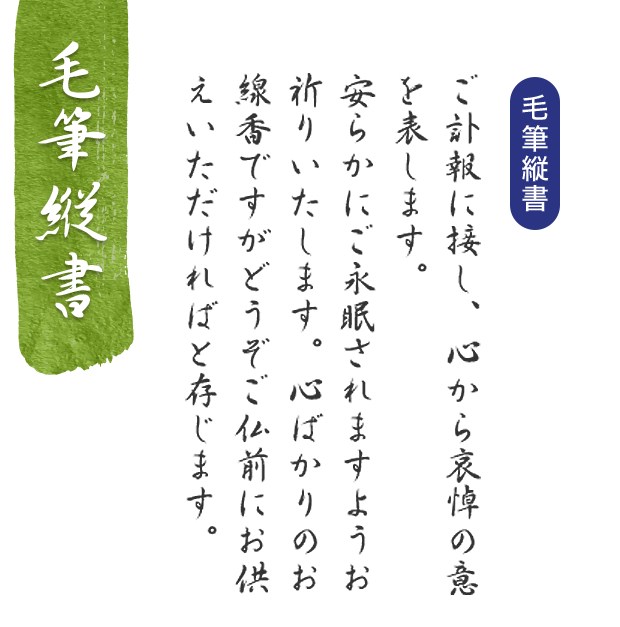 毛筆縦書
ご訃報に接し、心から哀悼の意
を表します。
安らかにご永眠されますようお
祈りいたします。心ばかりのお
線香ですがどうぞご仏前にお供
えいただければと存じます。
毛筆縦書